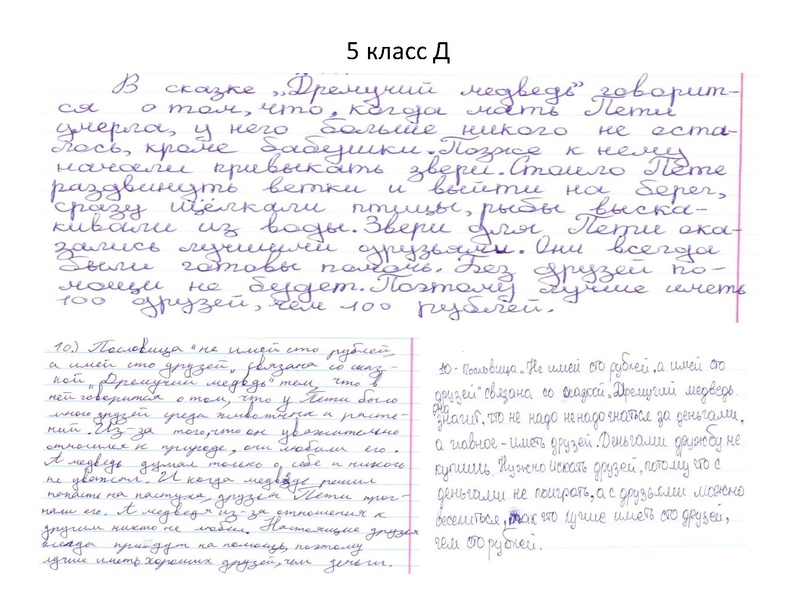 5 класс Д
В сказке „Дремучий медведь" говорит-
ся о том, что, когда мать Пети
умерла, у него больше никого не оста-
лось, кроме бабушки. Позже к нему
начали привыкать звери. Стоило Пете
раздвинуть ветки и выйти на берег,
сразу щёлкали птицы, рыбы выска-
кивали из воды. Звери для Пети ока-
зались лучшими друзьями. Они всегда
были готовы помочь. Без друзей по-
мощи не будет. Поэтому лучше иметь
100 друзей, чем 100 рублей.
10.) Пословица "не имей сто рублей,
а имей сто друзей" связана со сказ-
кой „Дремучий медведь" тем, что в
ней говорится о том, что у Пети было
много друзей среди животных и расте-
ний. Из-за того, что он уважительно
относился к природе, они любили его.
А медведь думал только о себе и никого
не уважал. И когда медведь решил
попасть на пастуха, друзья Пети прог-
нали его. А медведя из-за отношения к
другим никто не любил. Настоящие друзья
всегда придут на помощь, поэтому
лучше иметь хороших друзей, чем деньги.
10 - Пословица „Не имей сто рублей, а имей сто
друзей" связана со сказкой „Дремучий медведь.
Это
значит, что не надо ненадо гнаться за деньгами,
а главное - иметь друзей. Деньгами дружбу не
купишь. Нужно искать друзей, потому что с
деньгами не поиграть, а с друзьями можно
веселиться, так что лучше иметь сто друзей,
чем сто рублей.